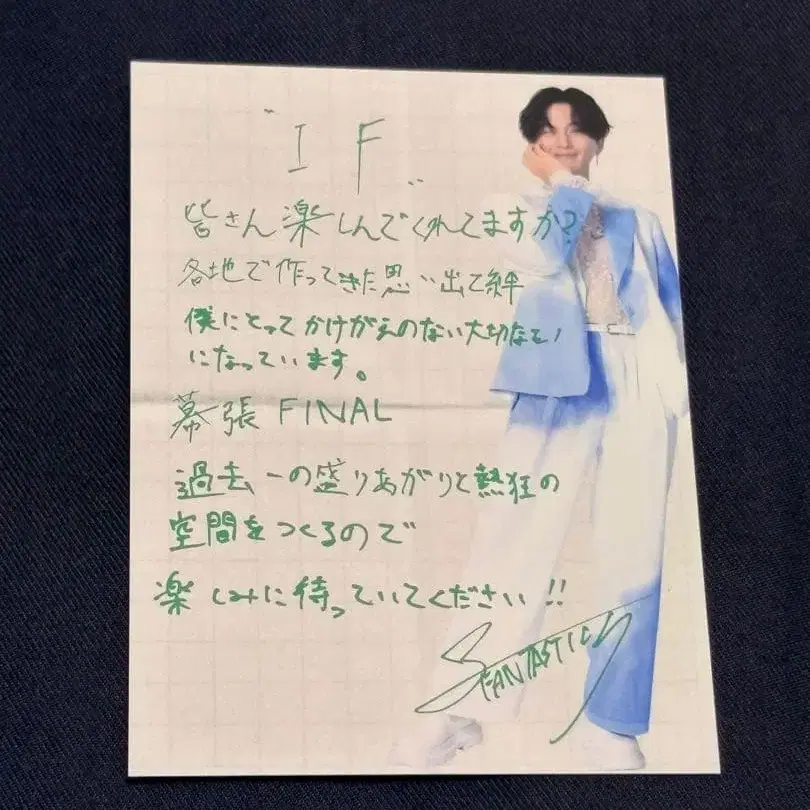 "IF"
皆さん楽しんでくれてますか?
各地で作ってきた思い出と絆
僕にとってかけがえのない大切なモノ
になっています。
幕張 FINAL
過去一の盛りあがりと熱狂の
空間をつくるので
楽しみに待っていてください!!
FANTASTICS